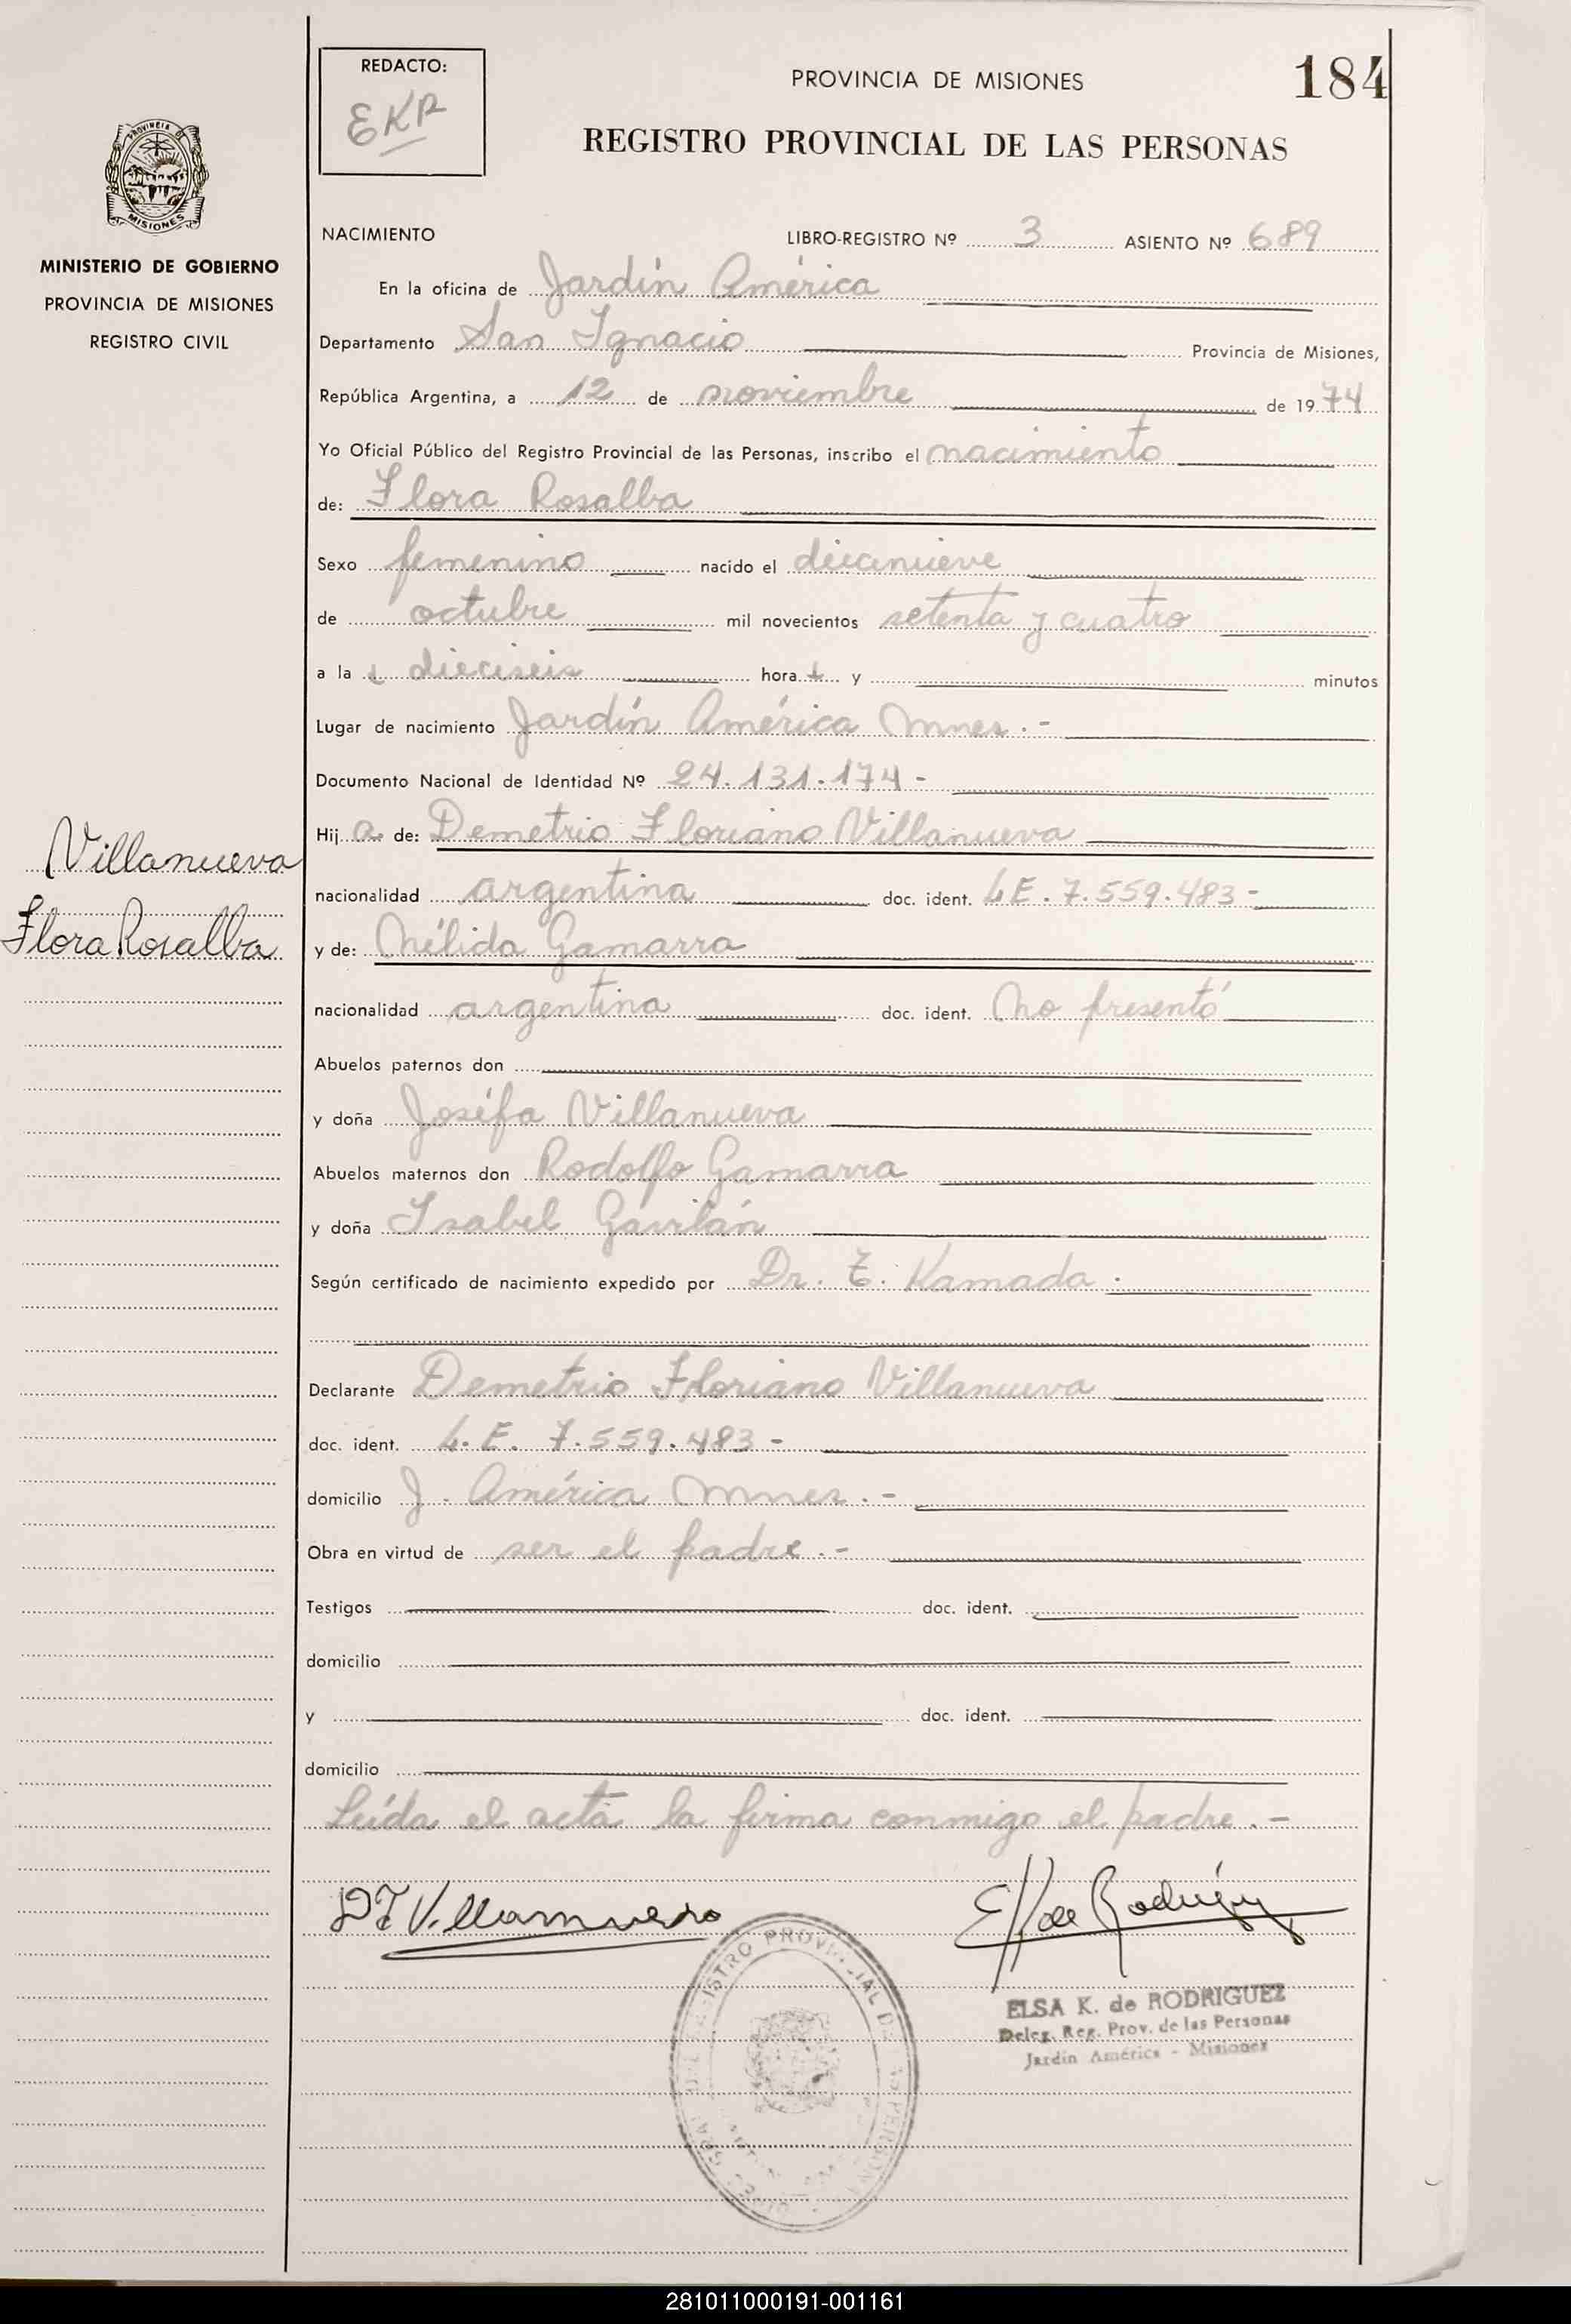 REDACTO:
EKR
PROVINCIA DE MISIONES
184
REGISTRO PROVINCIAL DE LAS PERSONAS
PROVINCIA DE
MISIONES
MINISTERIO DE GOBIERNO
PROVINCIA DE MISIONES
REGISTRO CIVIL
NACIMIENTO LIBRO-REGISTRO Nº 3 ASIENTO Nº 689
En la oficina de Jardín América
Departamento San Ignacio Provincia de Misiones,
República Argentina, a 12 de noviembre de 1974
Yo Oficial Público del Registro Provincial de las Personas, inscribo el nacimiento
de: Flora Rosalba
Sexo femenino nacido el diecinueve
de octubre mil novecientos setenta y cuatro
a la s dieciseis hora s y minutos
Lugar de nacimiento Jardín América Mnes.-
Documento Nacional de Identidad Nº 24.131.174-
Hij a de: Demetrio Floriano Villanueva
Villanueva
nacionalidad argentina doc. ident. L.E. 7.559.483-
Flora Rosalba
y de: Nélida Gamarra
nacionalidad argentina doc. ident. No presentó
Abuelos paternos don
y doña Joséfa Villanueva
Abuelos maternos don Rodolfo Gamarra
y doña Isabel Gavilán
Según certificado de nacimiento expedido por Dr. T. Kamada.
Declarante Demetrio Floriano Villanueva
doc. ident. L.E. 7.559.483-
domicilio J. América Mnes.-
Obra en virtud de ser el padre.-
Testigos doc. ident.
domicilio
y doc. ident.
domicilio
Leída el acta la firma conmigo el padre.-
DF Villanueva
EK de Rodríguez
ELSA K. de RODRIGUEZ
Deleg. Reg. Prov. de las Personas
Jardín América - Misiones
281011000191-001161